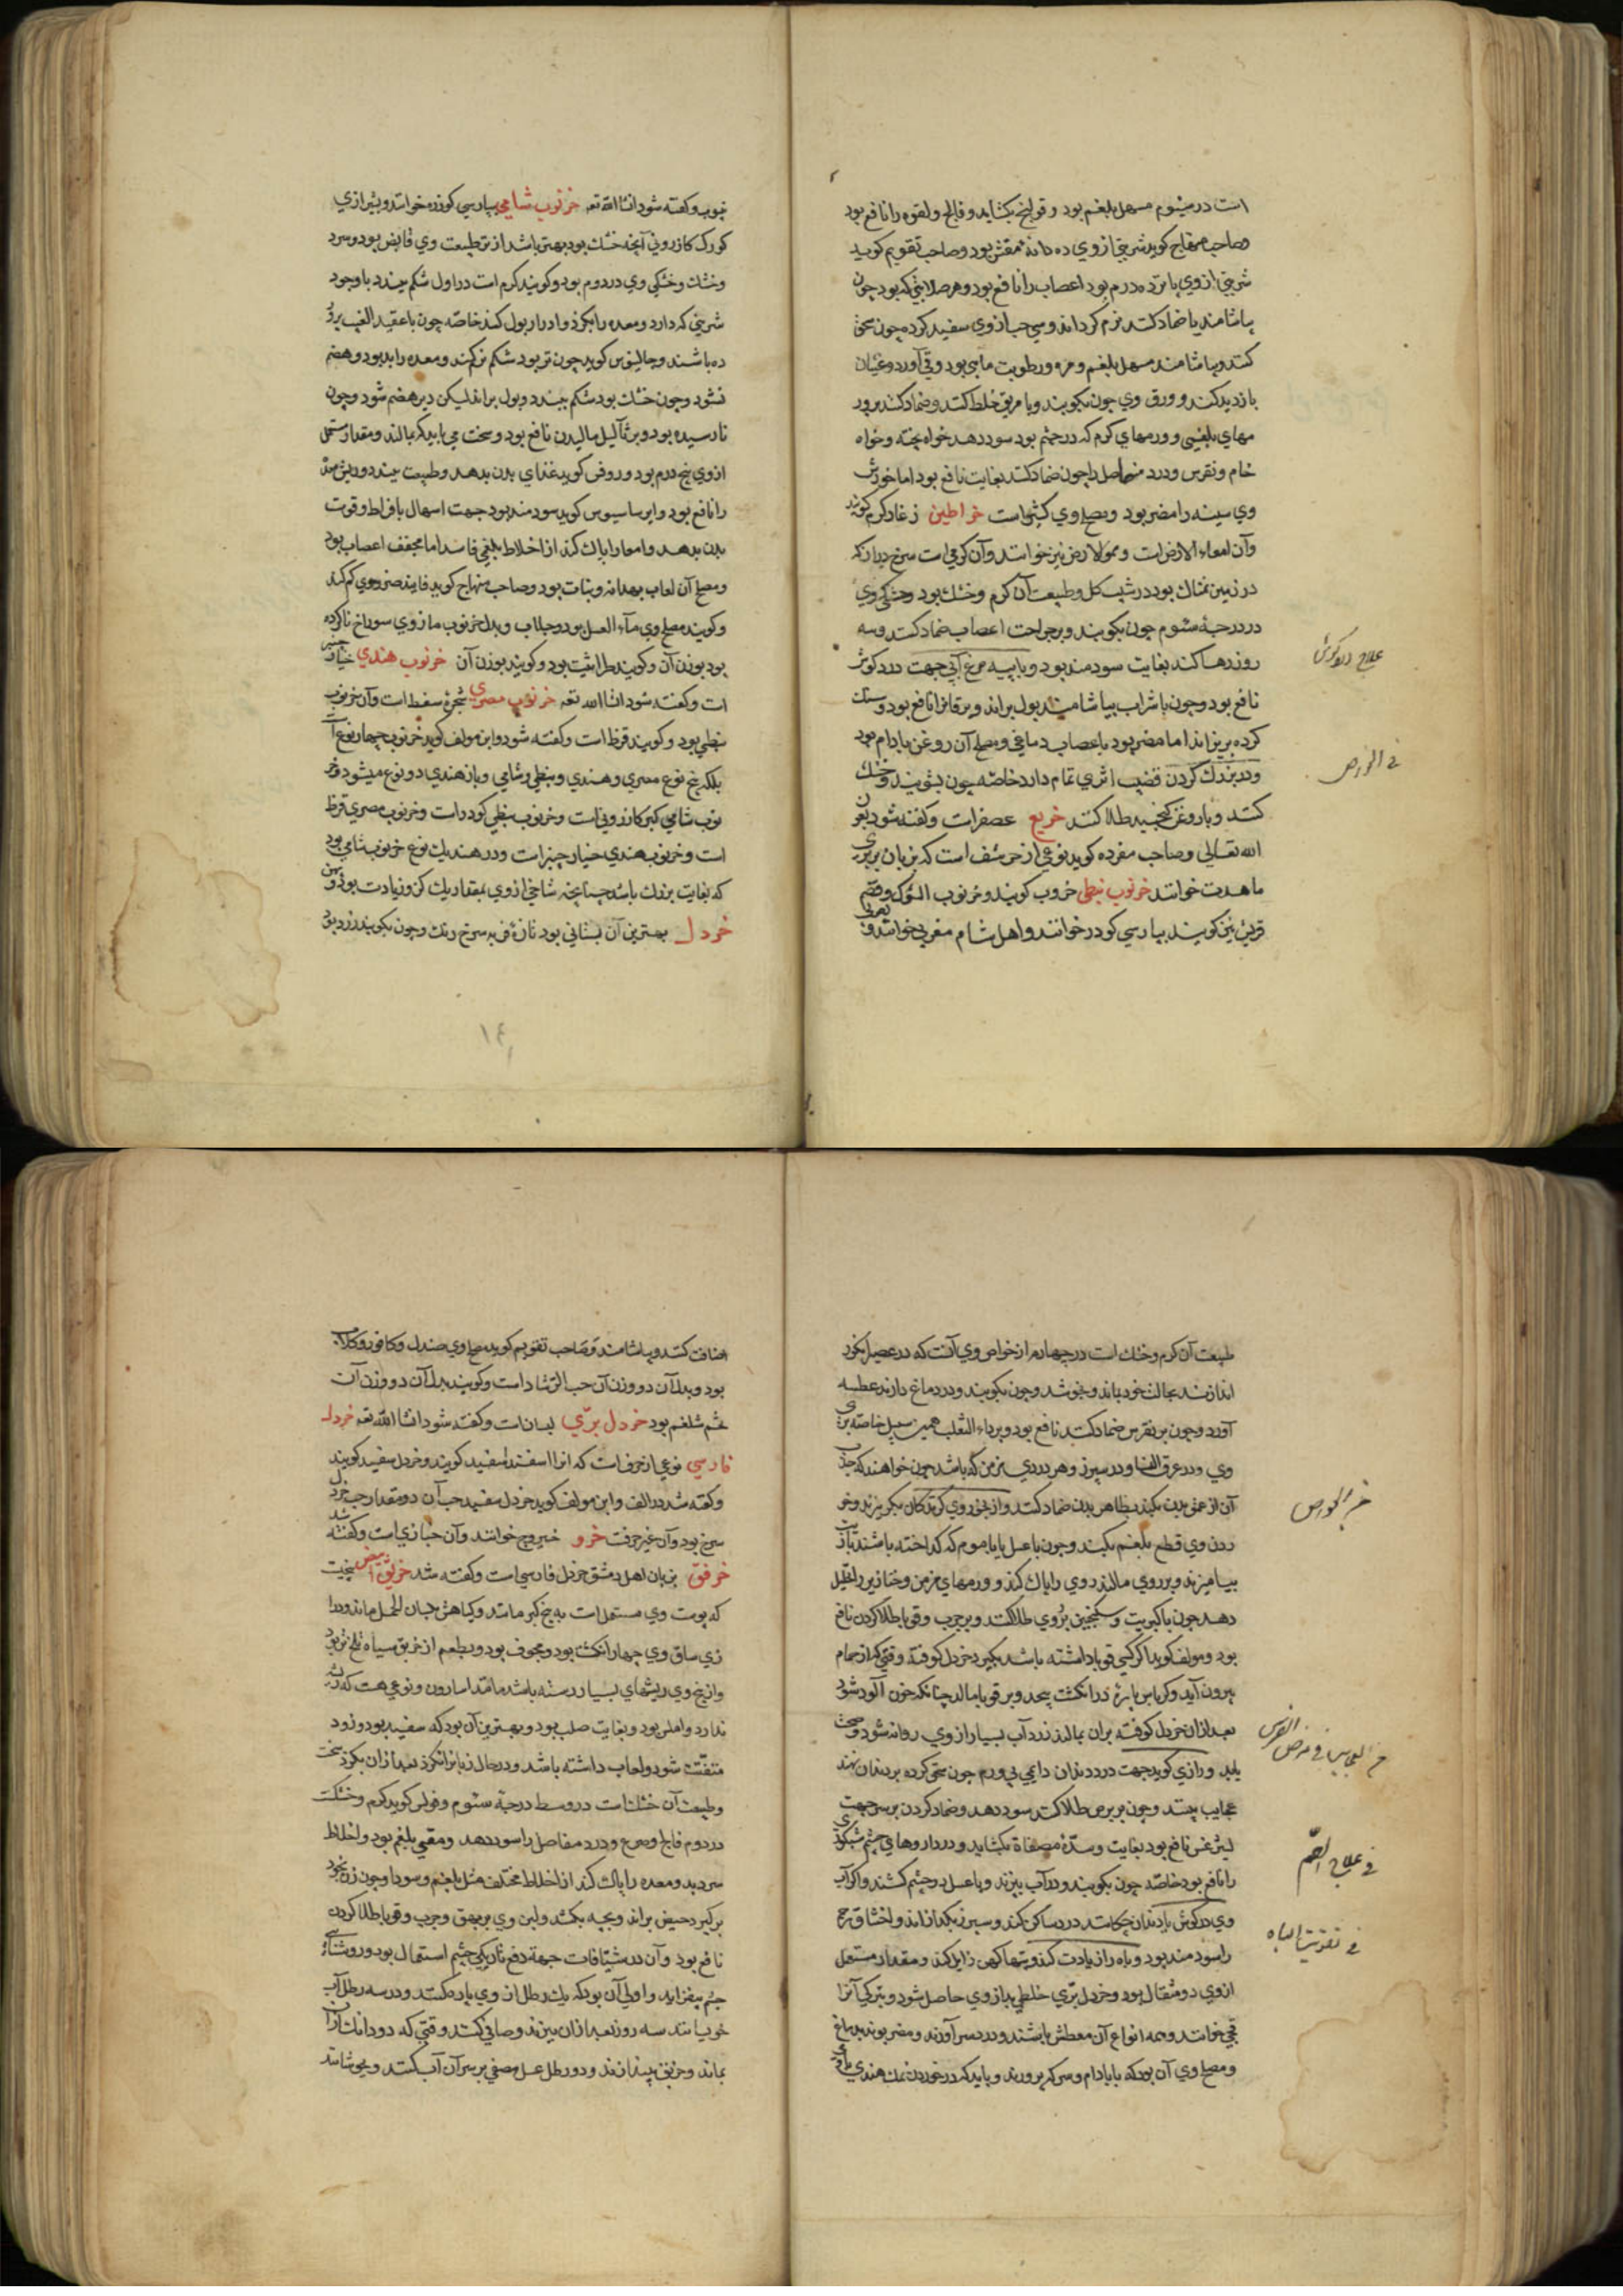 است در سیوم مسهل بلغم بود و قولنج بکشاید و فالج و لقوه را نافع بود
وصاحب منهاج کوید شربتی ازوی ده دانه مقشر بود وصاحب تقویم کوید
شربتی ازوی پانزده درم بود اعصاب را نافع بود و هر صلابتی که بود چون
بیاشامند یا ضماد کنند نرم کرداند و سی حب ازوی سفید کرده چون سحق
کنند و بیاشامند مسهل بلغم و مره و رطوبت مایی بود و قی آورد و غثیان
بازدید کند و ورق وی چون بکوبند و با مریق خلط کنند و ضماد کنند بر ور
مهای بلغمی و ورمهای کرم که در چشم بود سود دهد خواه پخته و خواه
خام و نقرس و درد مفاصل را چون ضماد کنند بغایت نافع بود اما خوردن
وی سینه را مضر بود و مصلح وی کثیراست خراطین زغار کرم کویند
وآن امعاء الارض است و نیز خوانند وآن کرمی است سرخ دراز که
در زمین نمناک بود در شیب کل و طبیعت آن کرم و خشک بود و خشکی وی
در درجهٔ سیوم چون بکوبند و بر جراحت اعصاب ضماد کنند و سه
روز رها کنند بغایت سودمند بود و با پیه مرغ آبی جهت درد کوش
علاج درد کوش
نافع بود و چون با شراب بیاشامند بول براند و یرقانرا نافع بود و سنک
کرده بریزاند اما مضر بود باعصاب دماغی و مصلح آن روغن بادام بود
ودر بزرک کردن قضیب اثری تمام دارد خاصه چون بشویند و خشک
کنند و با روغن کنجید طلا کنند خریع عصفرات و کفته شود بعون
الله تعالی وصاحب مفرده کوید نوعی از حرشف است که بزبان بربری
ماهدت خوانند خرنوب نبطی خروب کویند و خرنوب الشوک و قضم
قریش نیز کویند بپارسی کودر خوانند و اهل شام مغربی خوانند و بعربی
ینبوب و کفته شود انشا الله تعه خرنوب شامی بپارسی کوزره خوانند و بشیرازی
کورک کازرونی آنچه خشک بود بهتر باشد از تر طبیعت وی قابض بود و سرد
وخشک و خشکی وی در دوم بود و کویند کرم است در اول شکم ببندد با وجود
شیرینی که دارد و معده را بکزد و ادرار بول کند خاصه چون با عقید العنب پرور
ده باشند و جالینوس کوید چون تر بود شکم نرم کند و معده را بد بود و هضم
نشود و چون خشک بود شکم ببندد و بول براند لیکن دیر هضم شود و چون
نارسیده بود و بر ثآلیل مالیدن نافع بود و سخت می باید که بمالند و مقدار مستعمل
ازوی پنج درم بود و روفس کوید غذای بدن بدهد و طبیعت ببندد و ریش مثانه
را نافع بود و ابرساسیوس کوید سودمند بود جهت اسهال بافراط و قوت
بدن بدهد و امعا را پاک کند از اخلاط بلغمی فاسد اما مجفف اعصاب بود
ومصلح آن لعاب بهدانه و نبات بود وصاحب منهاج کوید فانید ضرر وی کم کند
وکویند مصلح وی ماء العسل بود و جلاب و بدل خرنوب مازوی سوراخ ناکرده
بود بوزن آن و کویند طراثیث بود و کویند بوزن آن خرنوب هندی خیار چنبر
است و کفته شود انشا الله تعه خرنوب مصری شجرهٔ سنط است وآن خرنوب
نبطی بود و کویند قرظ است و کفته شود و ابن مولف کوید خرنوب چهار نوع است
بلکه پنج نوع مصری و هندی و نبطی و شامی و باز هندی دو نوع میشود خر
نوب شامی کبر کازرونی است و خرنوب نبطی کودر است و خرنوب مصری قرظ
است و خرنوب هندی خیار چنبر است و در هند یک نوع خرنوب شامی بود
که بغایت بزرک باشد چنانچه شاخی ازوی بمقدار یک کز و زیادت بود و پهن
خردل بهترین آن بستانی بود تازهٔ فربه سرخ رنک و چون بکوبند زرد بود
۱۴
طبیعت آن کرم و خشک است در چهارم از خواص وی آنست که در عصیر انکور
اندازند بحالت خود بماند و نجوشد و چون بکوبند و در دماغ دارند عطسه
آورد و چون بر نقرس ضماد کنند نافع بود و بر داء الثعلب همین سبیل خاصه بری
وی و در عرق النسا و در سپرز و هر دردی مزمن که باشد چون خواهند که جذب
آن از عمق بدن بکند بظاهر بدن ضماد کنند و از بخور وی کزندکان بکریزند و خو
ردن وی قطع بلغم بکند و چون با عسل یا با موم که کداخته باشند با زیت
بیامیزند و بر روی مالند روی را پاک کند و ورمهای مزمن و خنازیر را تحلیل
دهد چون با کبریت و سکنجبین بر وی طلا کنند و بر جرب و قوبا طلا کردن نافع
بود و مولف کوید اکر کسی قوبا داشته باشد بکیرد خردل کوفته وقتی که از حمام
بیرون آید و کرباس پارهٔ در انکشت پیچد و بر قوبا مالد چنانکه خون آلود شود
بعد ازان خردل کوفته بران بمالند زرد آب بسیار از وی روانه شود و صحت
یابد و رازی کوید جهت درد دندان دایمی بی ورم چون سحق کرده بر دندان نهند
عجایب بینند و چون بر برص طلا کنند سود دهد و ضماد کردن بر سر جهت
لیثرغس نافع بود بغایت و سدهٔ مصفاة بکشاید و در داروهای چشم شبکوری
فی علاج الصمم
را نافع بود خاصه چون بکوبند و در آب بپزند و با عسل در چشم کشند و اکر آب
وی در کوش یا دندان چکانند درد ساکن کند و سپرز بکدازاند و اختناق رحم
را سودمند بود و باه را زیادت کند و تبهای کهن زایل کند و مقدار مستعمل
فی تقویت الباه
ازوی دو مثقال بود و خردل بری خلطی بد ازوی حاصل شود و بترکی آنرا
قجی خوانند و همه انواع آن معطش باشند و درد سر آورند و مضر بوند بدماغ
ومصلح وی آن بود که با بادام و سرکه پرورند و باید که در خوردن نمک هندی با وی
اضافت کنند و بیاشامند و صاحب تقویم کوید مصلح وی صندل و کافور و کلاب
بود و بدل آن دو وزن آن حب الرشاد است و کویند بدل آن دو وزن آن
تخم شلغم بود خردل بری لبسان است و کفته شود انشا الله تعه خردل
فارسی نوعی از حرف است که انرا اسفند اسفید کویند و خردل سفید کویند
وکفته شد در الف و ابن مولف کوید خردل سفید حب آن دو مقدار حب خردل
سرخ بود وآن غیر حرفت خرو خیروج خوانند وآن خبازی است و کفته شد
خرفق بزبان اهل دمشق خردل فارسی است و کفته شد خربق ابیض بیخیست
که پوست وی مستعمل است به بیخ کبر ماند و کیاهش بلسان الحمل ماند و درا
زی ساق وی چهار انکشت بود و مجوف بود و بطعم از خربق سیاه تلخ تر بود
وازبیخ وی ریشهای بسیار رسته باشد مانند اسارون و نوعی هست که ریشه
ندارد و املس بود و بغایت صلب بود و بهترین آن بود که سفید بود و زود
متفتت شود و لعاب داشته باشد و در حال زبانرا نکزد بعد ازان بکزد سخت
وطبیعت آن خشک است در وسط درجهٔ سیوم و فولس کوید کرم و خشکست
در دوم فالج و صرع و درد مفاصل را سود دهد و مقیی بلغم بود و اخلاط
سر دبد و معده را پاک کند از اخلاط مختلف مثل بلغم و سودا و چون زن بخود
برکیرد حیض براند و بچه بکشد و لبن وی بر بهق و جرب و قوبا طلا کردن
نافع بود وآن در شیافات جهة دفع تاریکی چشم استعمال بود و روشنائی
چشم بیفزاید و اولی آن بود که یک رطل از وی پاره کنند و در سه رطل آب
خویسانند سه روز بعد ازان بپزند و صافی کنند وقتی که دو دانک ازان
بماند و خربق بیندازند و دو رطل عسل مصفی بر سر آن آب کنند و بجوشانند